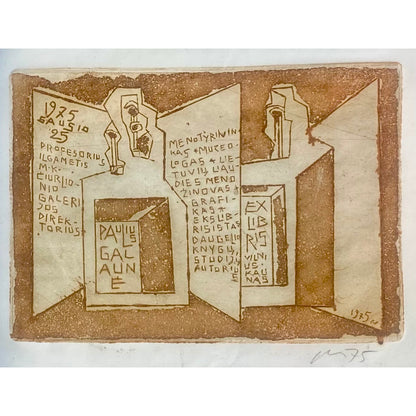 1975
SAUSIO
25
PROFESORIUS
ILGAMETIS
M·K·
ČIURLIO-
NIO
GALERI
JOS
DIREK-
TORIUS·
PAULIUS
GALAUNĖ
MENOTYRININ
KAS + MUZEO
LOGAS + LIE-
TUVIŲ LIAU
DIES MENO
ŽINOVAS
GRAFI-
KAS +
EKSLIB-
RISISTAS
DAUGELIO
KNYGŲ,
STUDIJŲ
AUTORIUS
EX
LIBRIS
VILNI
US-
KAU
NAS
1975
75